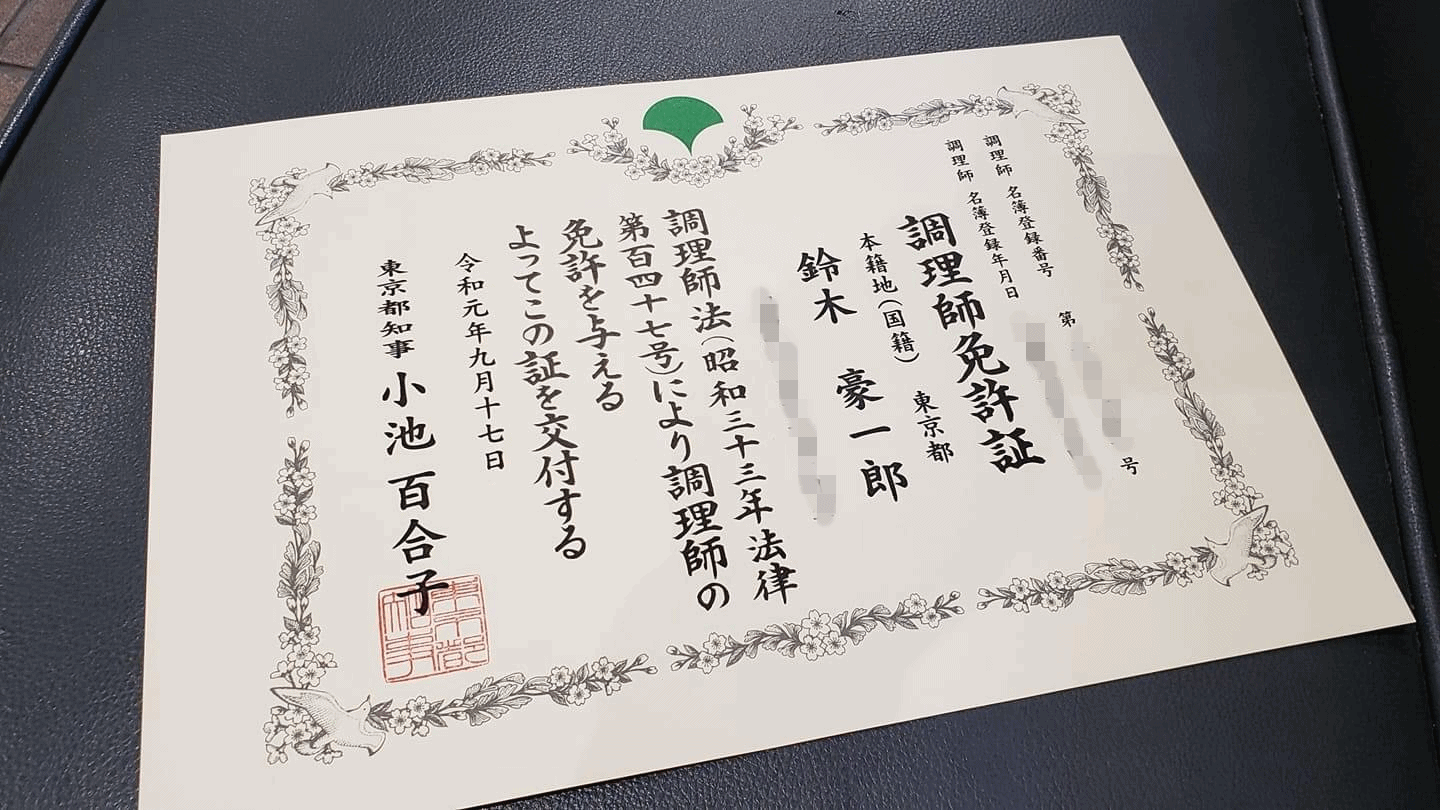 調理師名簿登録番号 第 号
調理師名簿登録年月日
調理師免許証
本籍地(国籍) 東京都
鈴木 豪一郎
調理師法(昭和三十三年法律
第百四十七号)により調理師の
免許を与える
よってこの証を交付する
令和元年九月十七日
東京都知事 小池百合子
東京都
知事